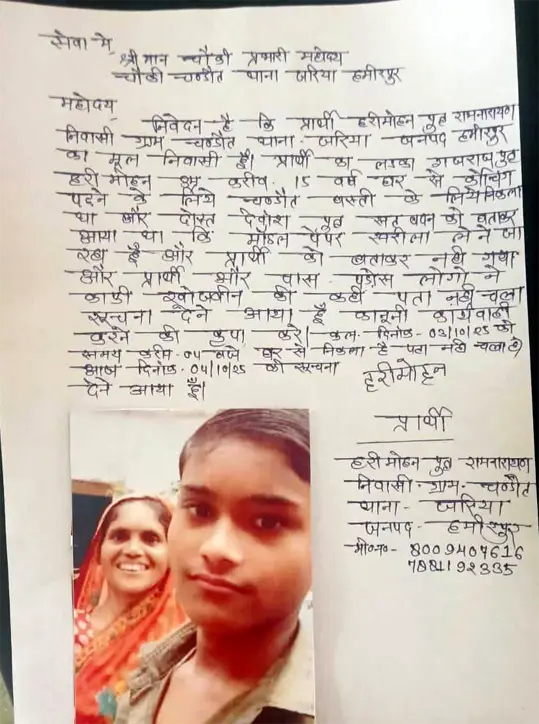 सेवा में,
श्री मान चौकी प्रभारी महोदय
चौकी चण्डौत थाना जरिया हमीरपुर
महोदय,
निवेदन है कि प्रार्थी हरीमोहन पुत्र रामनारायण
निवासी ग्राम चण्डौत थाना- जरिया जनपद हमीरपुर
का मूल निवासी हूँ। प्रार्थी का लडका गजराज पुत्र
हरी मोहन उम्र करीव 15 वर्ष घर से कोचिंग
पढ़ने के लिये चण्डौत वस्ती के लिये निकला
था और दोस्त देवांश पुत्र सत्य वचन को वताकर
आया था कि मॉडल पेपर खरीला लेने जा
रहा हूँ और प्रार्थी को बताकर नही गया
और प्रार्थी और पास पडोस लोगो ने
काफी खोजवीन की कही पता नही चला
सूचना देने आया हूँ कानूनी कार्यवाही
करने की कृपा करे। कल- दिनांक- 03/10/25 को
समय करीव- 04 बजे घर से निकला है पता नही चला है।
आज दिनांक- 04/10/25 को सूचना
देने आया हूँ।
हरीमोहन
प्रार्थी
हरी मोहन पुत्र रामनारायण
निवासी- ग्राम- चण्डौत
थाना- जरिया
जनपद- हमीरपुर
मो०न०- 8009407616